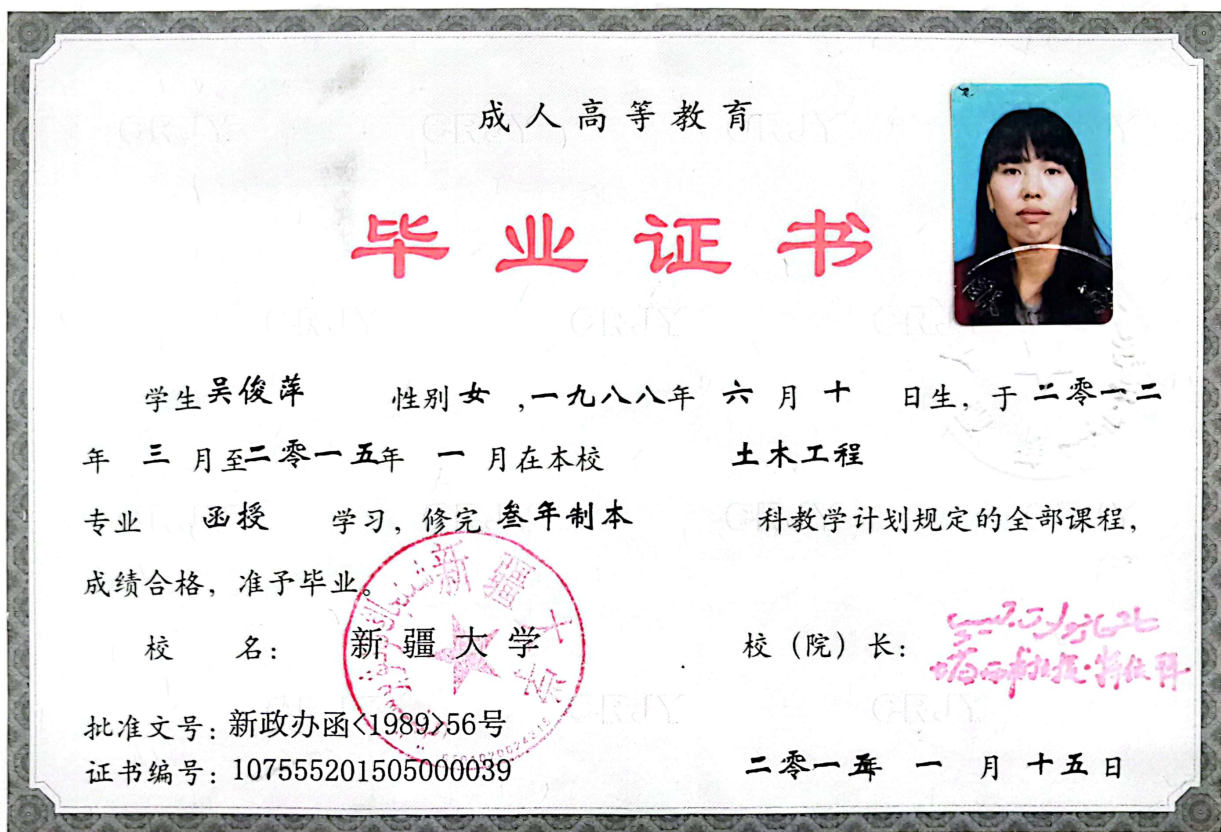 成人高等教育
毕业证书
学生 吴俊萍 性别 女 ,一九八八年 六 月 十 日生, 于 二零一二
年 三 月至二零一五年 一 月在本校 土木工程
专业 函授 学习, 修完 叁年制本 科教学计划规定的全部课程,
成绩合格, 准予毕业。
校 名: 新疆大学 校（院）长:
批准文号: 新政办函<1989>56号
证书编号: 107555201505000039 二零一五年 一 月 十五日
新疆大学